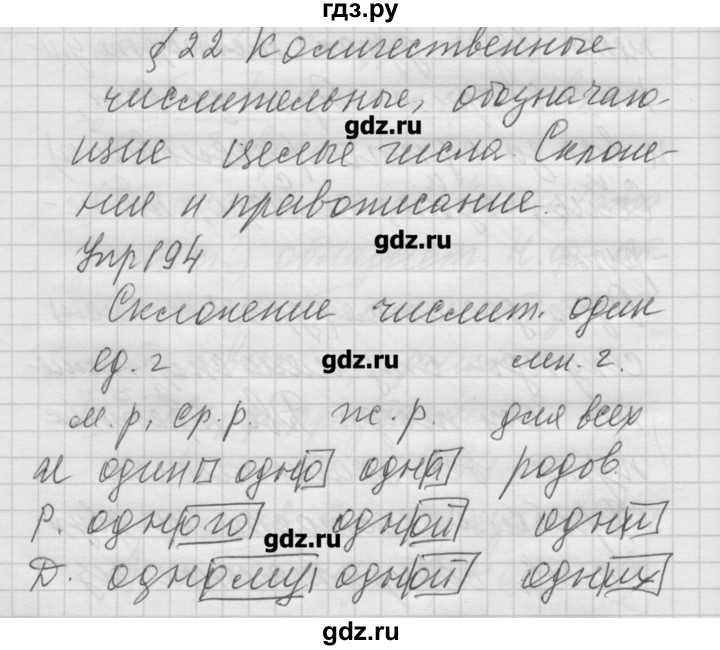 гдз.ру
§ 22 Количественные
числительные, обознача-
gdz.ru
ющие целые числа. Склоне-
ния и правописание.
gdz.ru
Упр 194
Склонение числит. один
ед. г gdz.ru мн. г.
м. р, ср. р. ж. р. для всех
И один одно одна родов.
Р. одного одной одни
gdz.ru
Д. одному одной одних
gdz.ru